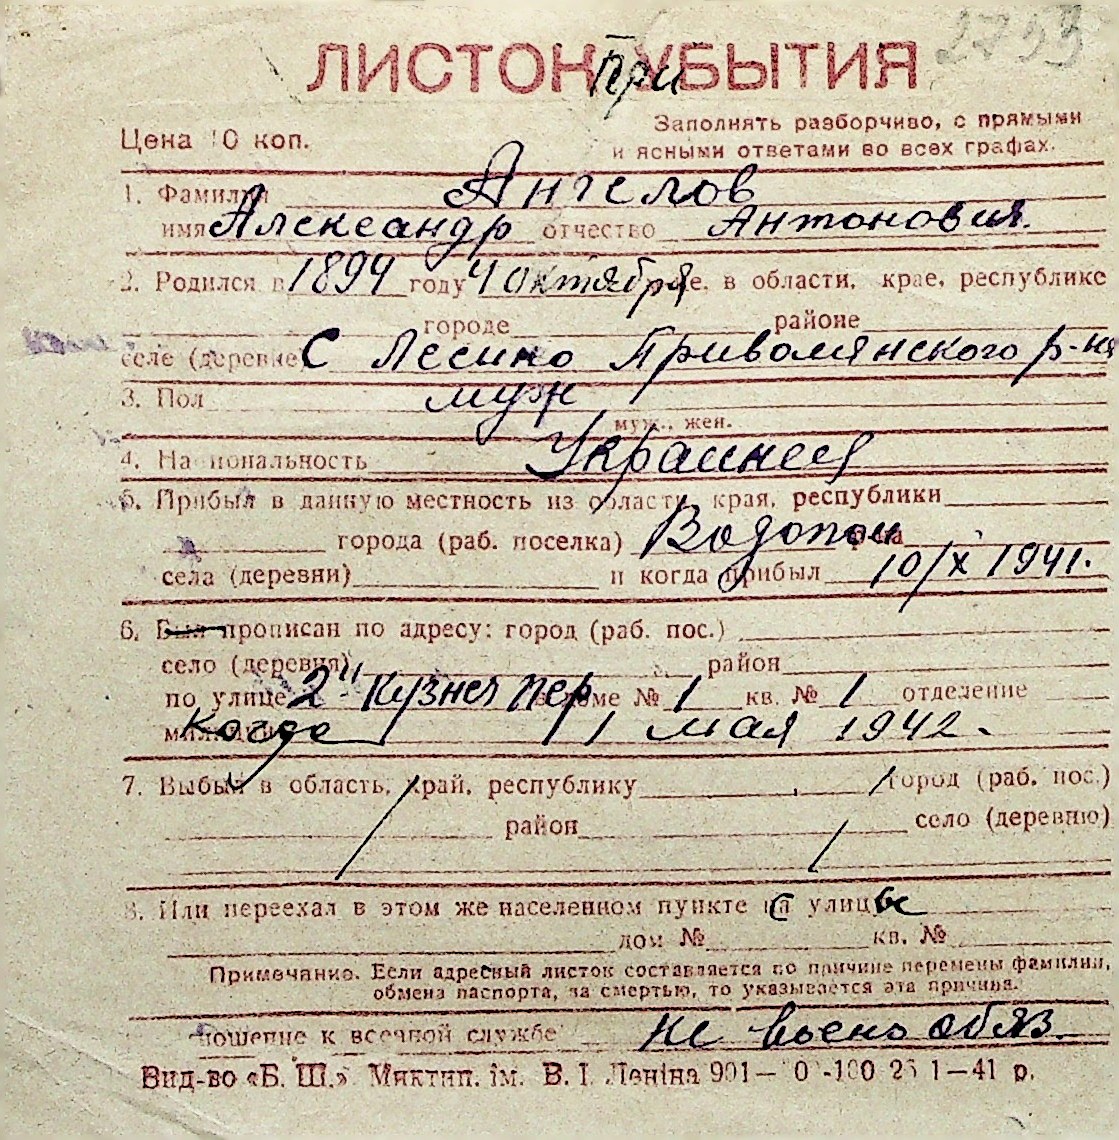 2753
ЛИСТОК УБЫТИЯ
При
Цена 10 коп.
Заполнять разборчиво, с прямыми
и ясными ответами во всех графах.
1. Фамилия Ангелов
имя Александр отчество Антонович
2. Родился в 1894 году 4 октября е, в области, крае, республике
городе районе
селе (деревне С Лесино р-на
3. Пол муж
муж., жен.
4. Национальность Украинец
5. Прибыл в данную местность из области, края, республики
города (раб. поселка) Водопой
села (деревни) и когда прибыл 10/X 1941.
6. Был прописан по адресу: город (раб. пос.)
село (деревня) район
по улице 2й Кузнеч пер в доме № 1 кв. № 1 отделение
милиции Когда 1 мая 1942.
7. Выбыл в область, край, республику город (раб. пос.)
район село (деревню)
8. Или переехал в этом же населенном пункте улицы
дом № кв. №
Примечание. Если адресный листок составляется по причине перемены фамилии,
обмена паспорта, за смертью, то указывается эта причина.
ношение к военной службе не военообяз.
Вид-во «Б. Ш.» Миктип. ім. В. І. Леніна 901— 1—41 р.